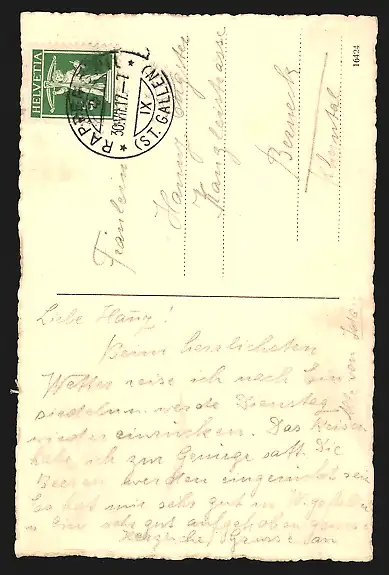 HELVETIA
RAPPERSWIL
30.VII.17.-1
IX
(ST. GALLEN)
16424
Fräulein
Hanny
Kanzleistrasse
Berneck
Rheintal
Liebe Hanny!
Beim herrlichsten
Wetter reise ich nach Ein
siedeln werde Dienstag
wieder einrücken. Das Reisen
habe ich zur Genüge satt. Die
Beeren werden eingemacht sein
Es hat mir sehr gut in
sehr gut aufgehoben
Herzliche Grüsse